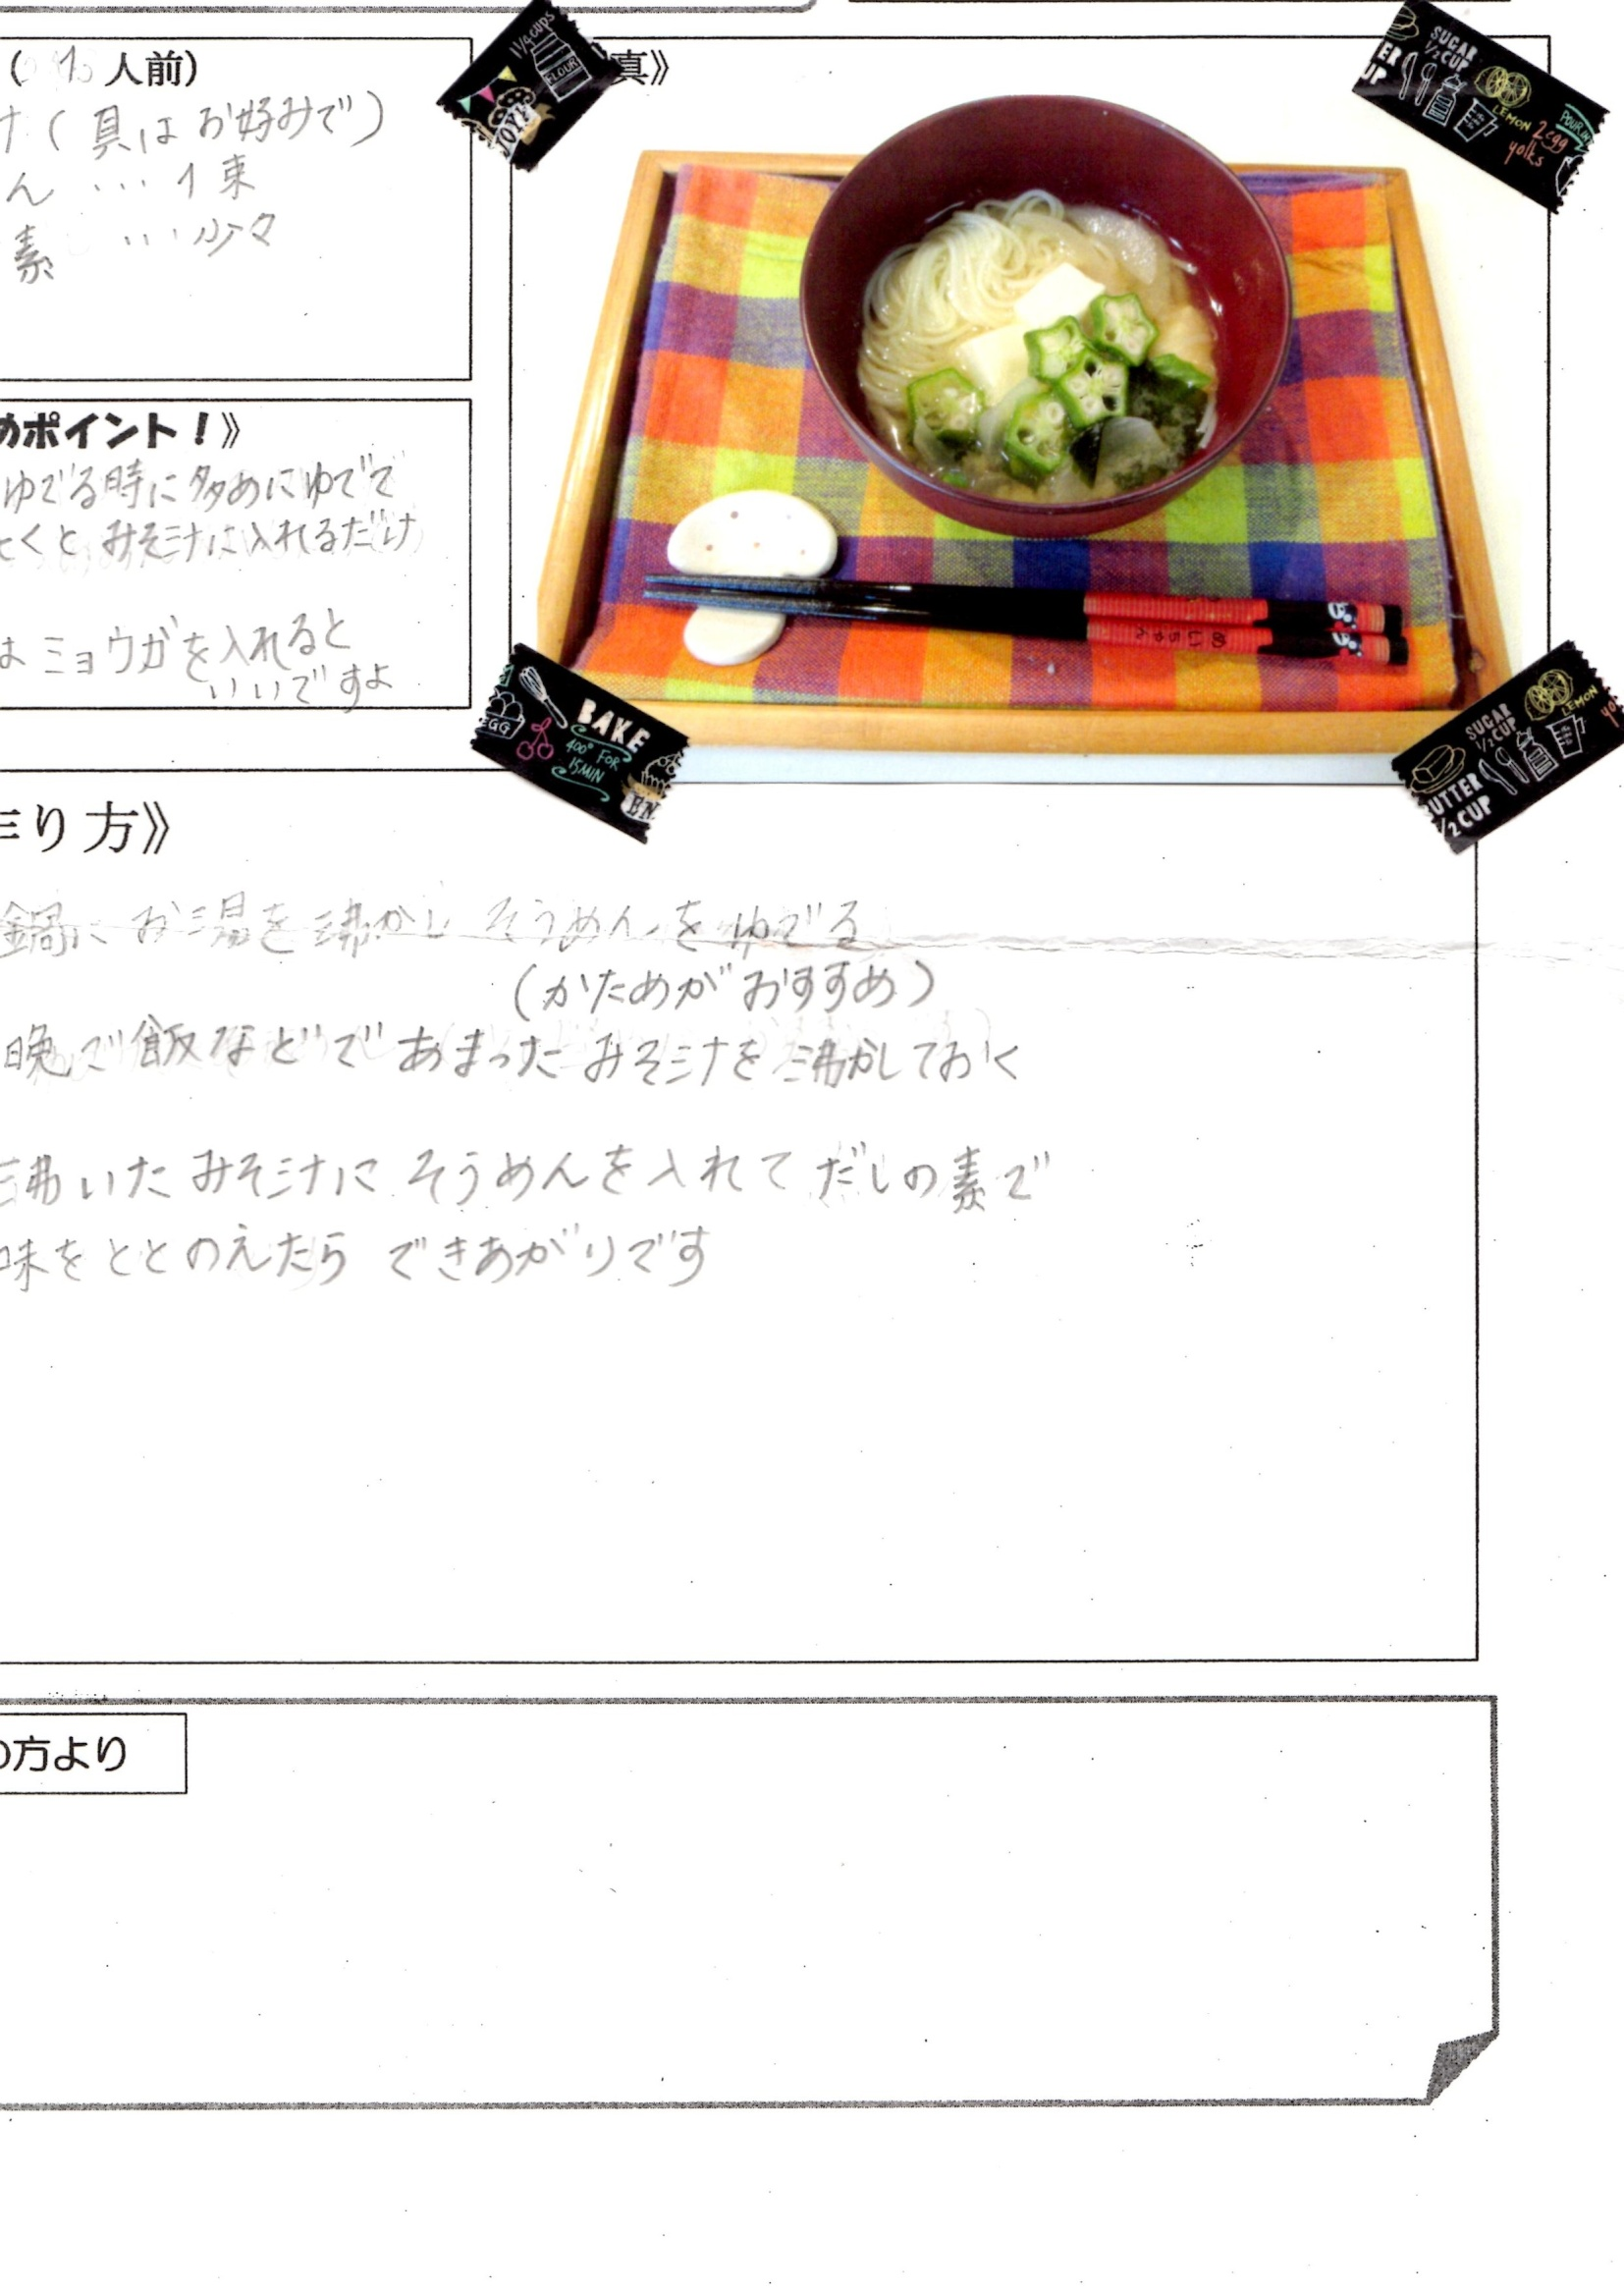 人前)
(具はお好みで)
ん … 1束
素 … 少々
めポイント!》
ゆでる時に多めにゆでて
とくと みそ汁に入れるだけ
は ミョウガを入れると
いいですよ
真》
1/4 CUPS
FLOUR
SUGAR
1/2 CUP
LEMON
POUR IN
2 egg
yolks
EGG
BAKE
400° FOR
15MIN
SUGAR
1/2 CUP
LEMON
BUTTER
1/2 CUP
作り方》
鍋に お湯を沸かし そうめんをゆでる
(かためがおすすめ)
晩ご飯などであまったみそ汁を沸かしておく
沸いたみそ汁に そうめんを入れて だしの素で
味をととのえたら できあがりです
の方より